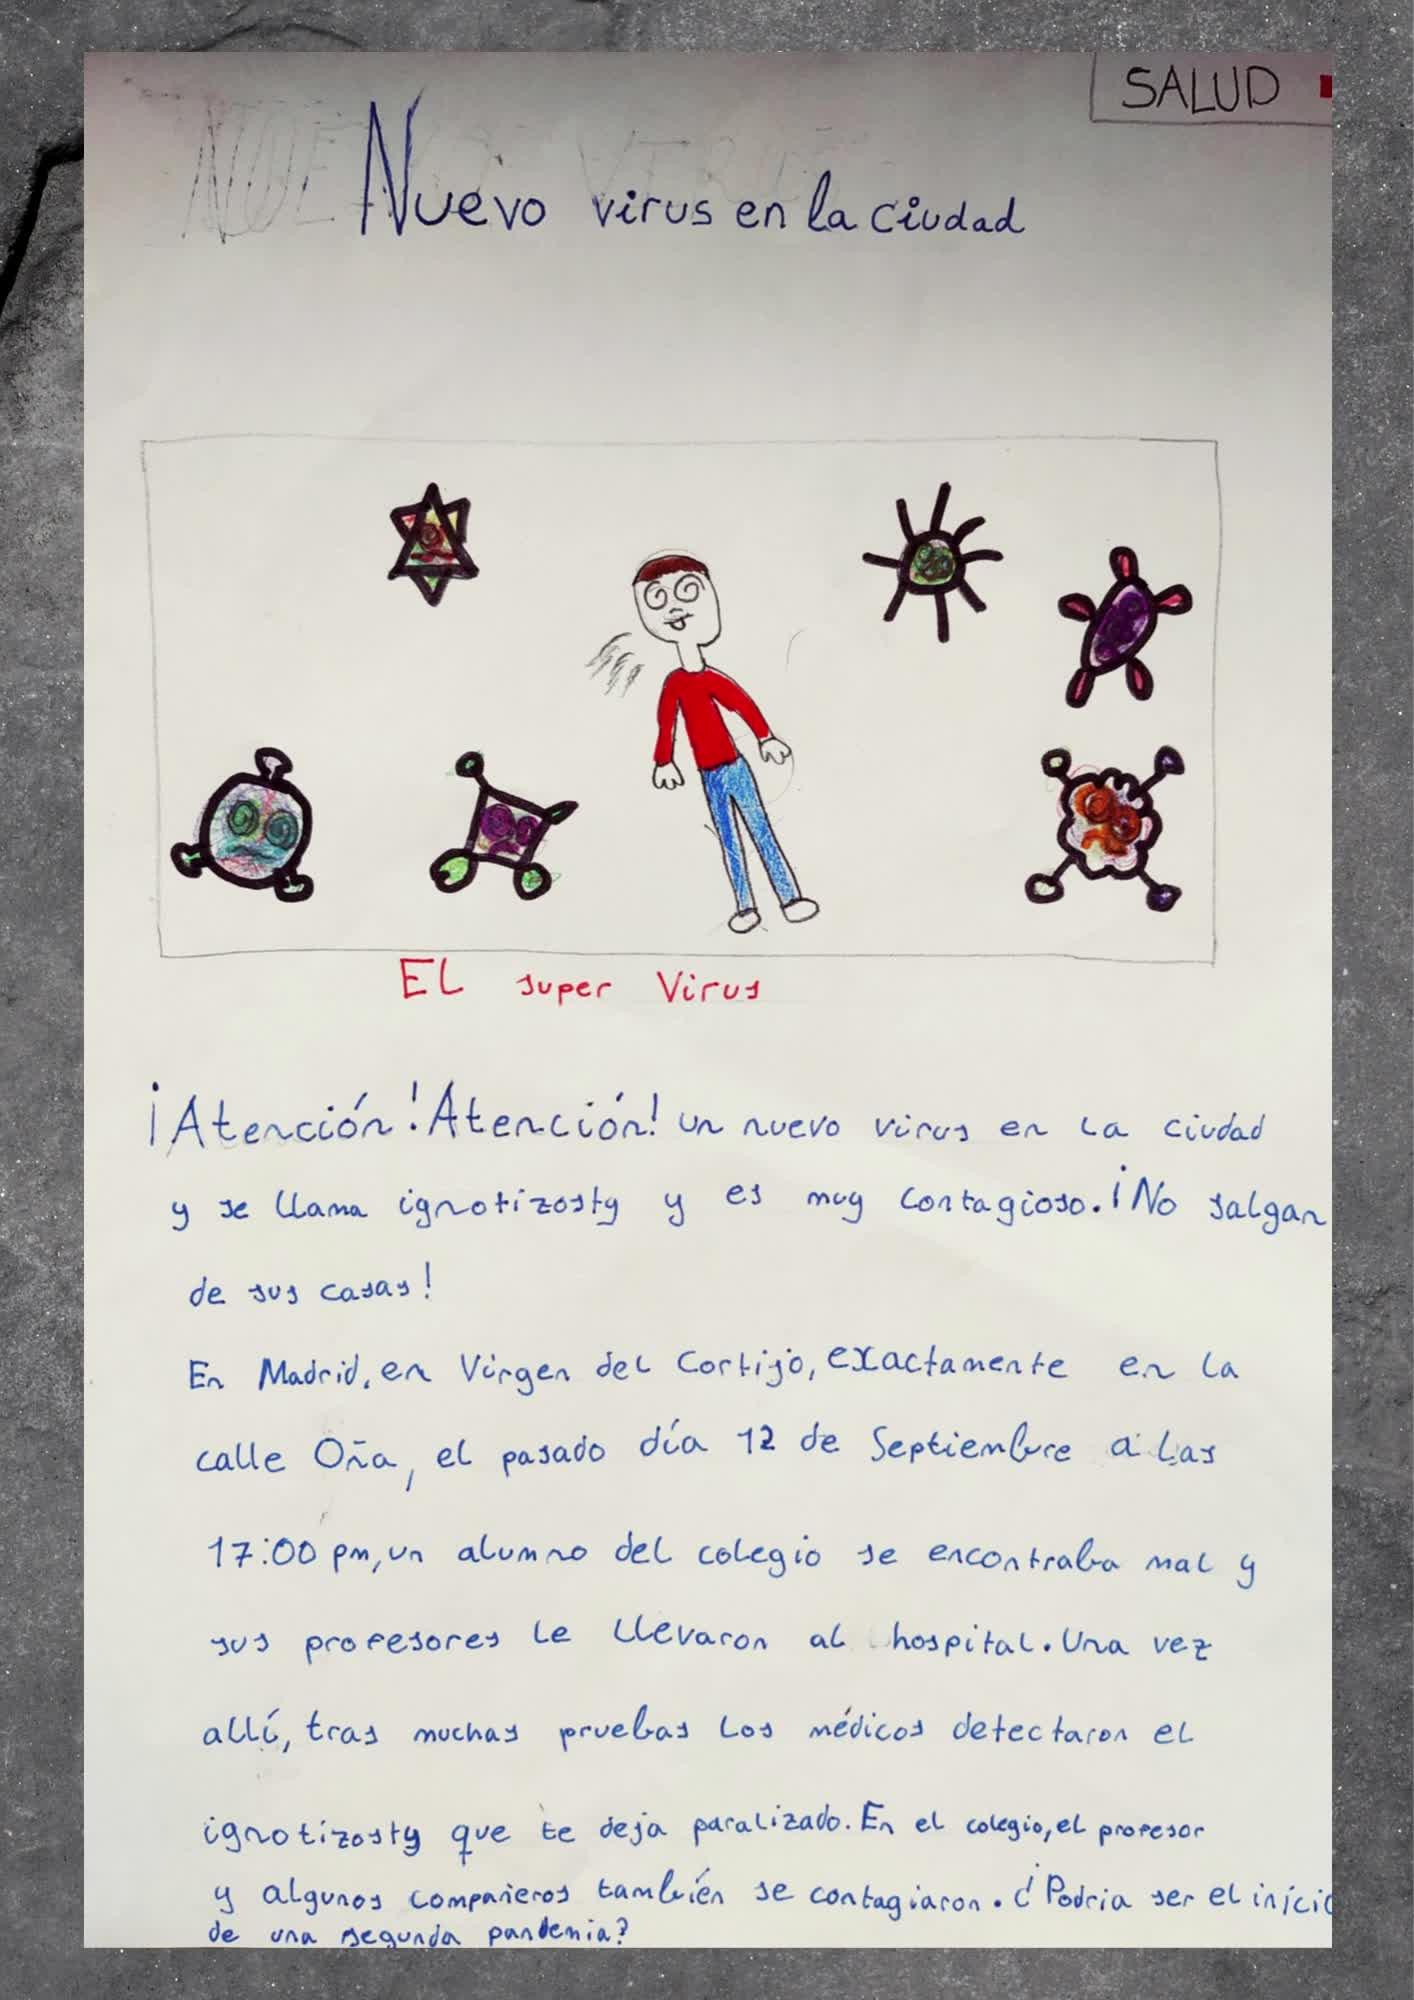 SALUD
Nuevo virus en la ciudad
EL super Virus
¡Atención! Atención! un nuevo virus en la ciudad
y se llama ignotizosty y es muy contagioso. ¡No salgan
de sus casas!
En Madrid, en Virgen del Cortijo, exactamente en la
calle Oña, el pasado día 12 de Septiembre a las
17:00 pm, un alumno del colegio se encontraba mal y
sus profesores le llevaron al hospital. Una vez
allí, tras muchas pruebas los médicos detectaron el
ignotizosty que te deja paralizado. En el colegio, el profesor
y algunos compañeros también se contagiaron. ¿Podria ser el inicio
de una segunda pandemia?